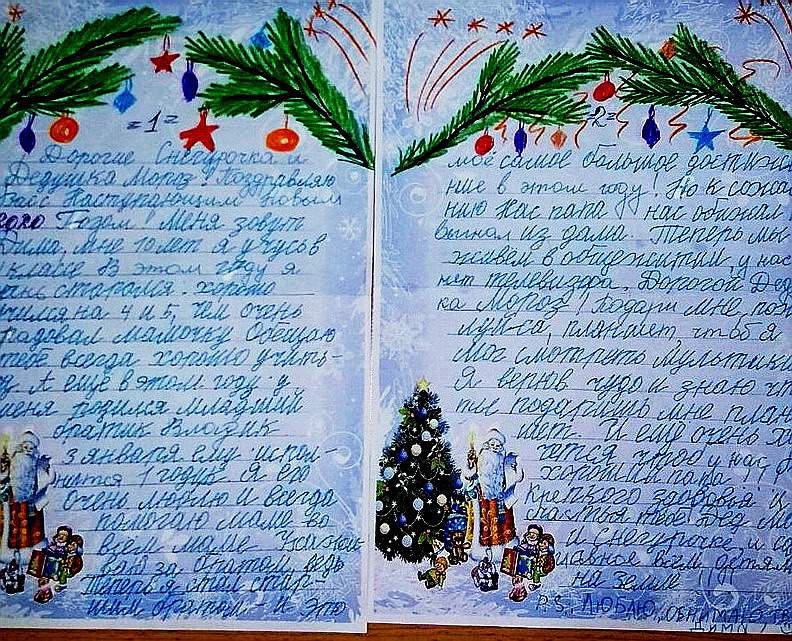 =1=
Дорогие Снегурочка и
Дедушка Мороз! Поздравляю
Васс Наступающим Новым
Годом! Меня зовут
Дима, мне 10 лет я учусь в
классе В этом году я
старался. хорошо
учился на 4 и 5, чем очень
радовал мамочку Обещаю
тебе всегда хорошо учить-
А еще в этом году у
меня родился младший
братик Владик
3 января ему испол-
нится 1 годик я его
очень люблю и всегда
помогаю маме во
всём маме
за братом, ведь
Теперь я стал стар-
шим братом - и это
=2=
моё самое большое достиже-
ние в этом году! Но к сожале-
нию Нас папа нас обижал
выгнал из дома. Теперь мы
живем в общежитии, у нас
нет телевизора, Дорогой Деду
ка Мороз! Подари мне, пож
луйса, планшет, чтобы я
мог смотреть мультики
Я верюв чудо и знаю чт
ты подаришь мне план
шет. И ещё очень хо
чется чтоб у нас
хороший папа
крепкого здоровья и
счастья тебе Дед Мо
и Снегурочке, и са
главное всем детям
на земле
P.S., ЛЮБЛЮ, ОБНИМАЮ, ТВ
ДИМА